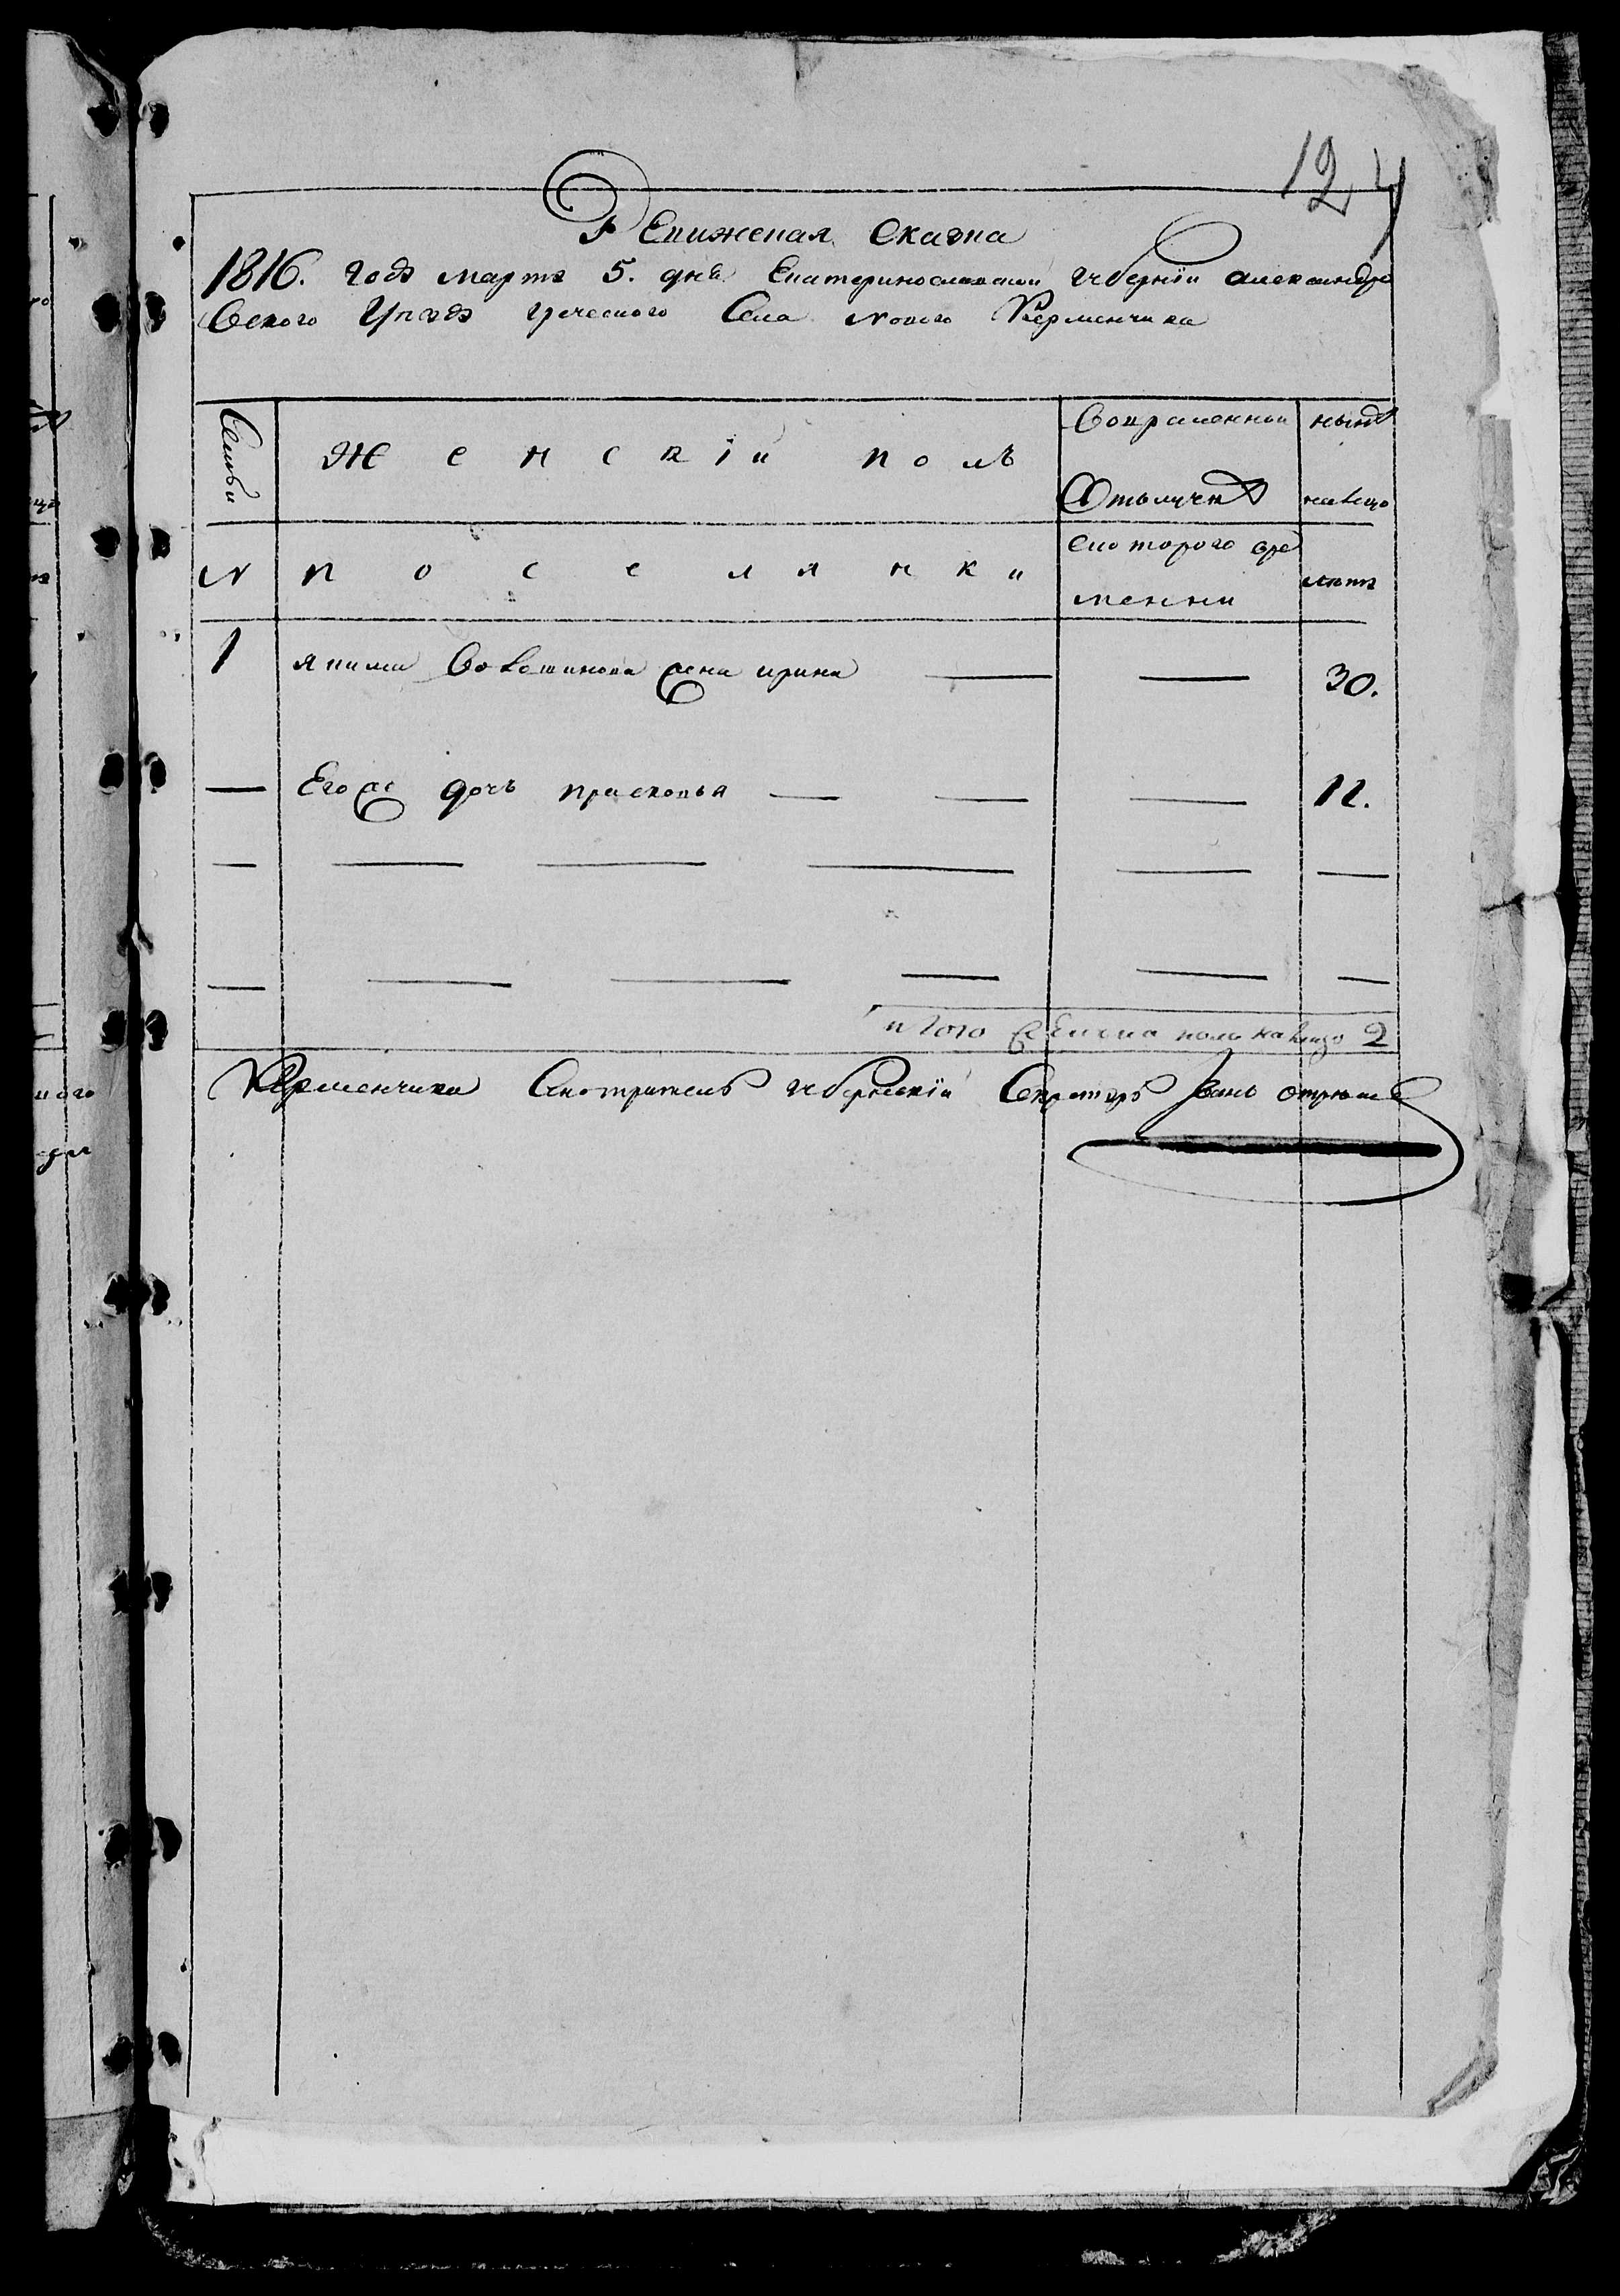 124
Ревижская Скаска
1816. года марта 5. дня Екатеринославской губернïи александро
вского уезда греческого Села нового Керменчика
Семьи
Женскïй полъ
Вовременной
Отлучке
ныне
налицо
N
поселянки
скоторого вре
менни
лета
1 якима жена ирина 30.
Его же дочь прасковья 12.
итого женска пола налицо 2
Керменчика Смотритель губернскïй Секретарь Иванъ